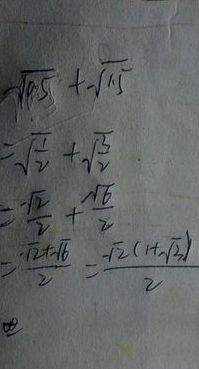 √0.5 + √1.5
= √1/2 + √3/2
= √2/2 + √6/2
= √2+√6/2 = √2(1+√3)/2